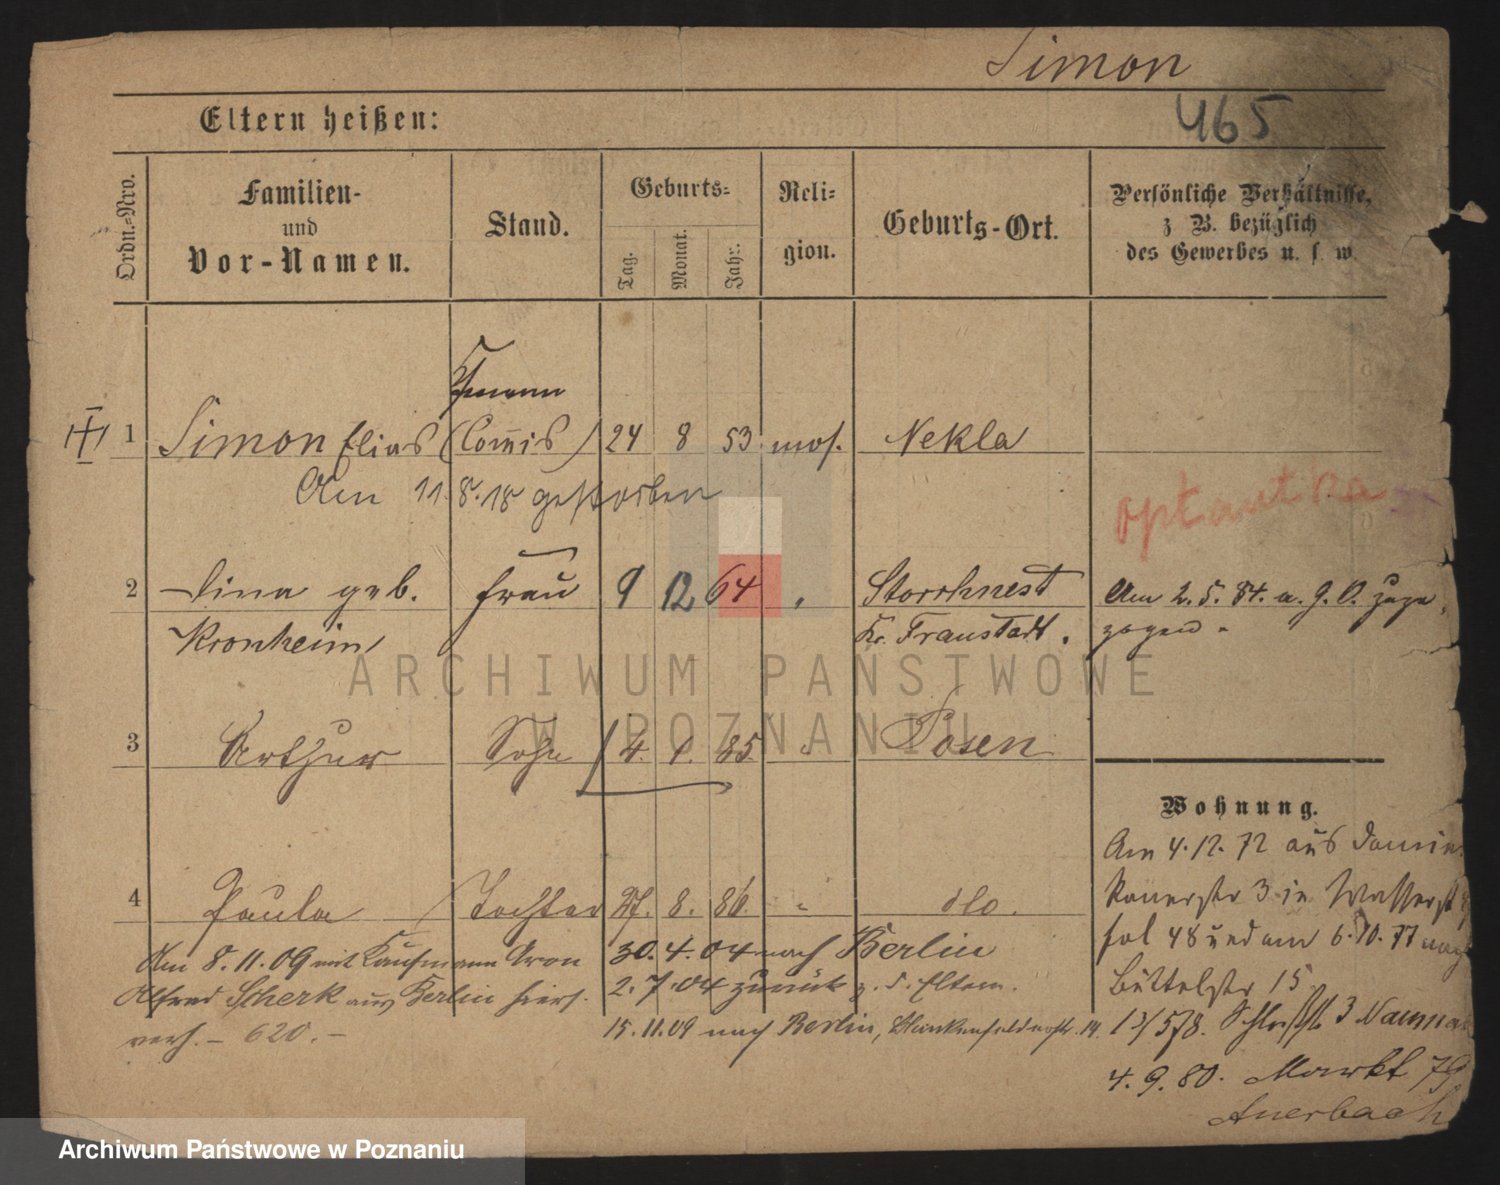 Simon
465
Eltern heißen:
Ordn.-Nro.
Familien- und Vor-Namen.
Stand.
Geburts-
Tag.
Monat.
Jahr.
Religion.
Geburts-Ort.
Persönliche Verhältnisse,
z B. bezüglich
des Gewerbes u. s. w.
Kfmann
1 Simon Elias (Commis) 24 8 53 mos. Nekla
Am 11.8.18 gestorben
optant
2 Dina geb. Frau 9 12 64 " Storchnest Am 2.5.84. zuge
Kronheim Kr. Fraustadt. zogen.
3 Arthur Sohn 4. 1. 85 " Posen
Wohnung.
Am 4.12.72 aus Domini
kanerstr 3 in Wasserstr
4 Paula Tochter 27. 8. 86. " do.
Am 8.11.09 mit Kaufmann Aron 30.4.04 nach Berlin
48 und am 6.10.77 nach
Alfred Scherk aus Berlin hiers. 2.7.04 zurück z. d. Eltern.
Büttelstr 15.
verh. – 620. –
15.11.09 nach Berlin, 14.
13/5 78. Schloßstr 3
4.9.80. Markt 79
Auerbach
ARCHIWUM PAŃSTWOWE
W POZNANIU
Archiwum Państwowe w Poznaniu